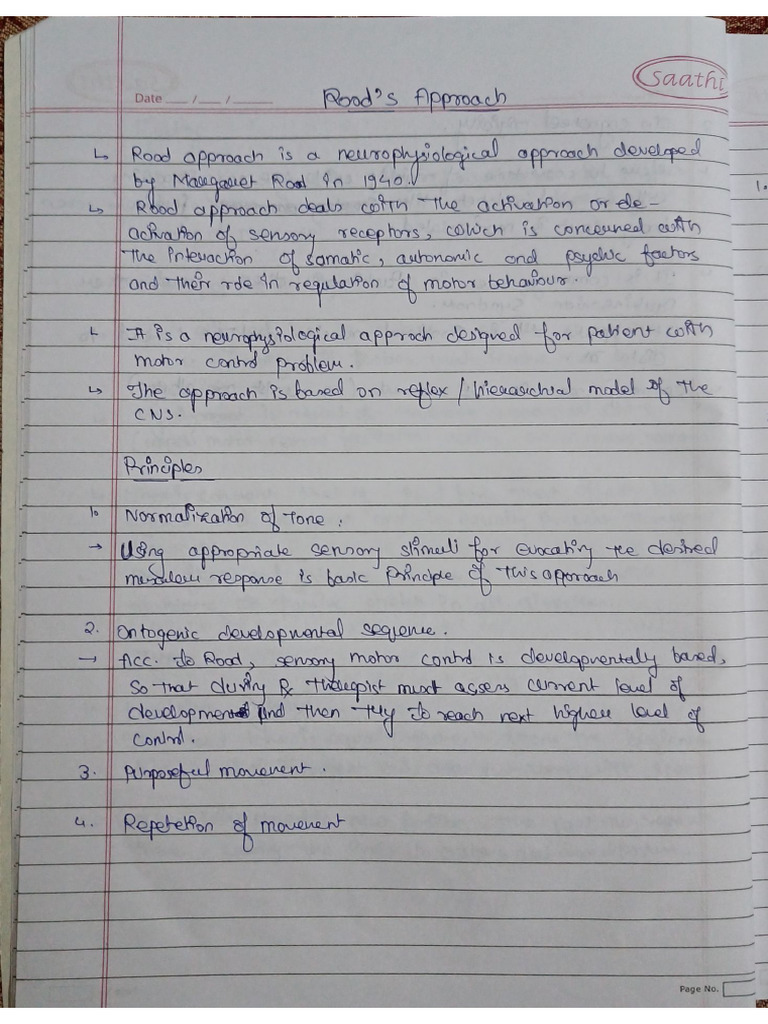 Saathi
Date __/__/____
Rood's Approach
↳ Rood approach is a neurophysiological approach developed
by Margaret Rood in 1940.
↳ Rood approach deals with the activation or de-
activation of sensory receptors, which is concerned with
the interaction of somatic, autonomic and psychic factors
and their role in regulation of motor behaviour.
↳ It is a neurophysiological approch designed for patient with
motor control problem.
↳ The approach is based on reflex / hierarchial model of the
CNS.
Principles
1. Normalization of Tone.
→ Using appropriate sensory stimuli for evocating the desired
muscular response is basic principle of this approach
2. Ontogenic developmental sequence.
→ Acc. to Rood, sensory motor control is developmentaly based,
so that during Rx therapist must assess current level of
development and then try to reach next higher level of
control.
3. Purposeful movement.
4. Repetetion of movement
Page No.
1.